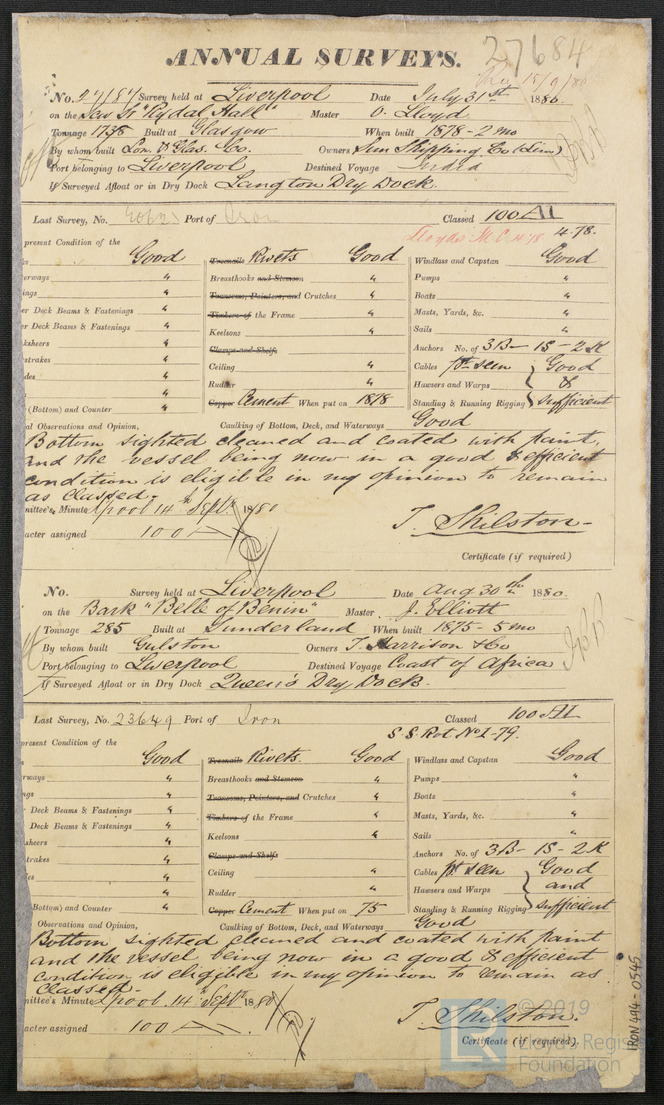 27684
ANNUAL SURVEYS.
15/9/80
No. 27187 Survey held at Liverpool Date July 31st 1880.
on the Scw Sr "Rydal Hall" Master O. Lloyd
Tonnage 1738 Built at Glasgow When built 1878 - 2 mo
By whom built Lon. & Glas. Co. Owners Sun Shipping Co (Lim)
Port belonging to Liverpool Destined Voyage India
If Surveyed Afloat or in Dry Dock Langton Dry Dock.
Last Survey, No. Port of Iron Classed 100 A1
Lloyds M.C. 4.78 4-78.
present Condition of the Good Treenails Rivets Good Windlass and Capstan Good
erways " Breasthooks and Stemson " Pumps "
ings " Transoms, Pointers, and Crutches " Boats "
er Deck Beams & Fastenings " Timbers of the Frame " Masts, Yards, &c. "
er Deck Beams & Fastenings " Keelsons " Sails "
ksheers " Clamps and Shelfs Anchors No. of 3B - 1S - 2K
strakes " Ceiling " Cables pt seen Good
des " Rudder " Hawsers and Warps &
(Bottom) and Counter " Copper Cement When put on 1878 Standing & Running Rigging sufficient
al Observations and Opinion, Caulking of Bottom, Deck, and Waterways Good
Bottom sighted cleaned and coated with paint,
and the vessel being now in a good & efficient
condition is eligible in my opinion to remain
as classed.-
mittee's Minute Lpool 14th Septr. 1880
acter assigned 100 A T. Shilston-
Certificate (if required)
No. Survey held at Liverpool Date Aug 30th 1880.
on the Bark "Belle of Benin" Master J. Elliott
Tonnage 285 Built at Sunderland When built 1875 - 5 mo
By whom built Gulston Owners T. Harrison & Co
Port belonging to Liverpool Destined Voyage Coast of Africa
If Surveyed Afloat or in Dry Dock Queen's Dry Dock.
Last Survey, No. 23649 Port of Iron Classed 100 A1
S.S. Rot. No 1-79.
present Condition of the Good Treenails Rivets. Good Windlass and Capstan Good
rways " Breasthooks and Stemson " Pumps "
ngs " Transoms, Pointers, and Crutches " Boats "
Deck Beams & Fastenings " Timbers of the Frame " Masts, Yards, &c. "
Deck Beams & Fastenings " Keelsons " Sails "
sheers " Clamps and Shelfs Anchors No. of 3B - 1S - 2K
trakes " Ceiling " Cables pt seen Good
" Rudder " Hawsers and Warps and
Bottom) and Counter " Copper Cement When put on 75 Standing & Running Rigging sufficient
Observations and Opinion, Caulking of Bottom, Deck, and Waterways Good
Bottom sighted cleaned and coated with paint
and the vessel being now in a good & efficient
condition is eligible in my opinion to remain as
classed-
mittee's Minute Lpool. 14th Septr. 1880
acter assigned 100 A T. Shilston.
Certificate (if required).
IRON 494-0545
LR © 2019
Lloyd's Regis
Foundation